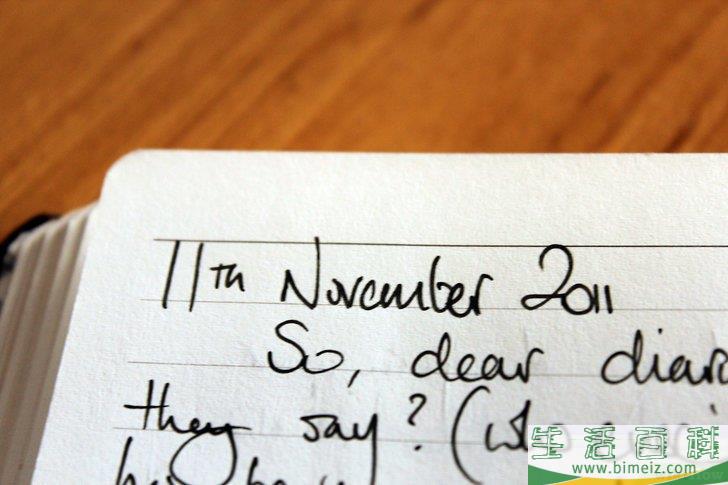 11th November 2011
So, dear diar
they say? (
生活百科
www.bimeiz.com